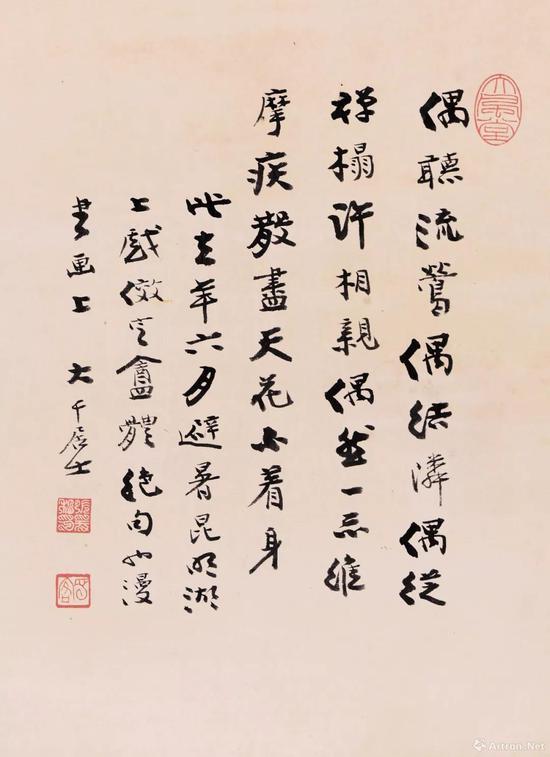 偶聽流鶯偶結鄰偶從
禪榻許相親偶然一示維
摩疾散盡天花不著身
此去年六月避暑昆明湖
上戲效香奩體絕句也漫
書畫上 大千居士
大風堂
Artron.Net